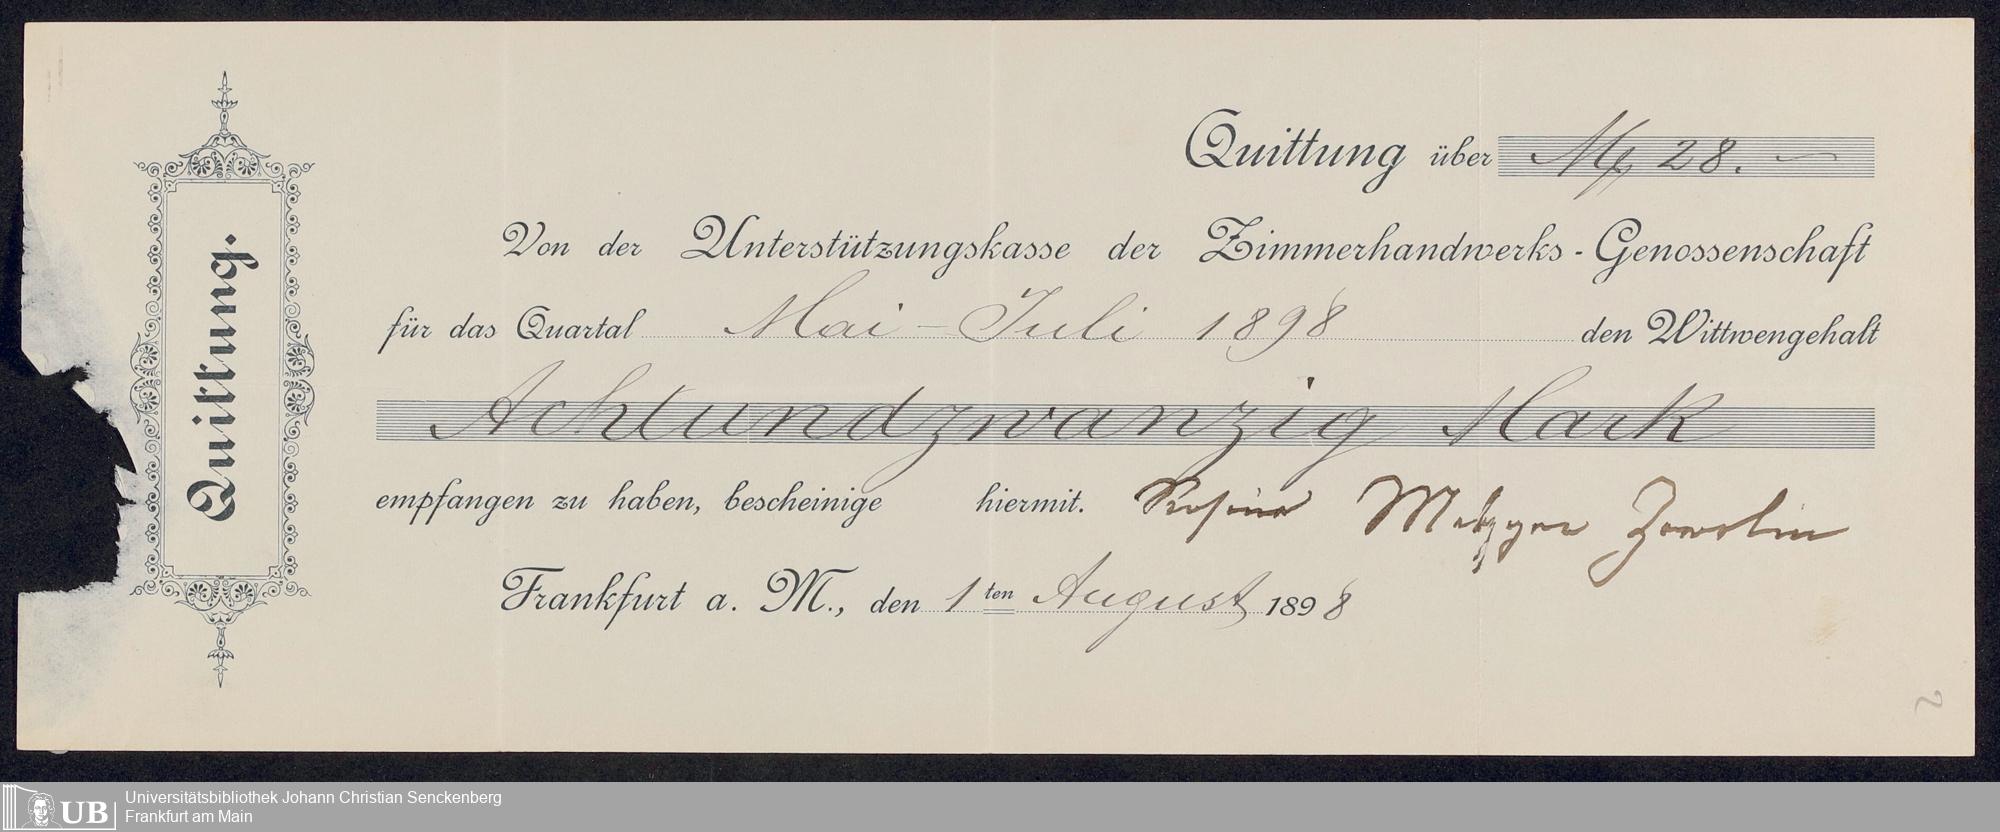 Quittung.
Quittung über M 28. —
Von der Unterstützungskasse der Zimmerhandwerks-Genossenschaft
für das Quartal Mai – Juli 1898 den Wittwengehalt
Achtundzwanzig Mark
empfangen zu haben, bescheinige hiermit. Rosine Metzger
Frankfurt a. M., den 1ten August 1898
2
UB
Universitätsbibliothek Johann Christian Senckenberg
Frankfurt am Main